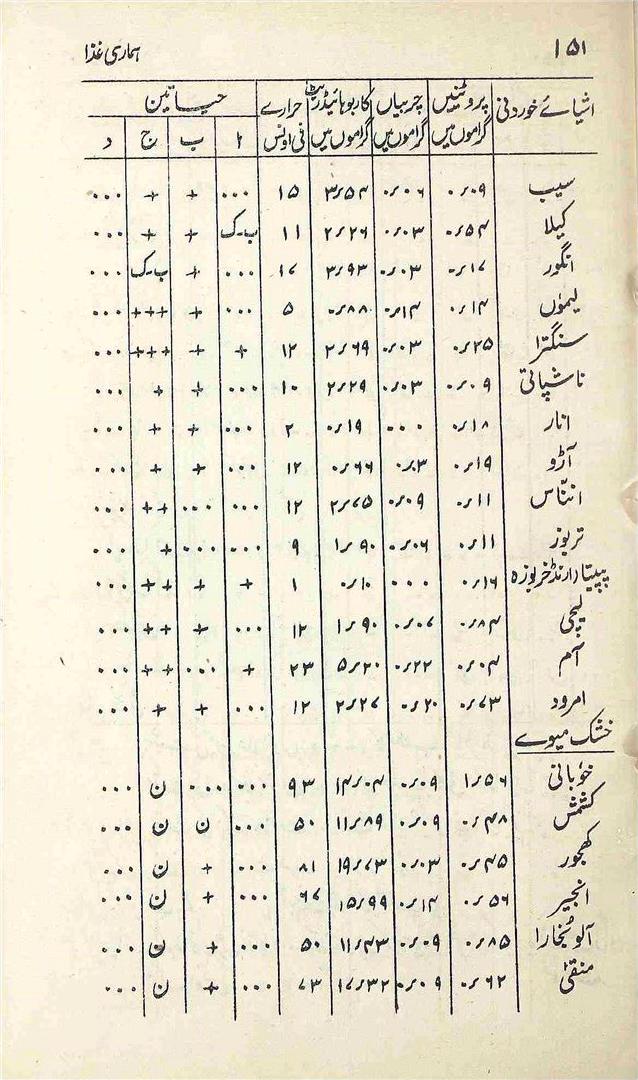 ۱۵۱ ہماری غذا
اشیائے خوردنی پروٹینیں گراموں میں چربیاں گراموں میں کاربوہائیڈریٹ گراموں میں حرارے فی اونس حیاتین
ا ب ج د
سیب ۰٫۰۹ ۰٫۰۶ ۳٫۵۴ ۱۵ ... + + ...
کیلا ۰٫۵۴ ۰٫۰۳ ۲٫۲۶ ۱۱ ب۔ک + + ...
انگور ۰٫۱۷ ۰٫۰۳ ۳٫۹۳ ۱۷ ... + ب۔ک ...
لیموں ۰٫۱۴ ۰٫۱۴ ۰٫۸۸ ۵ ... + +++ ...
سنگترا ۰٫۲۵ ۰٫۰۳ ۲٫۶۹ ۱۲ + + +++ ...
ناشپاتی ۰٫۰۹ ۰٫۰۳ ۲٫۲۹ ۱۰ ... + + ...
انار ۰٫۱۸ ۰۰۰ ۰٫۱۹ ۲ ... + + ...
آڑو ۰٫۱۹ ۰٫۰۳ ۰٫۶۶ ۱۲ ... + + ...
انناس ۰٫۱۱ ۰٫۰۹ ۲٫۷۵ ۱۲ ... ... ++ ...
تربوز ۰٫۱۱ ۰٫۰۶ ۱٫۹۰ ۹ ... ... + ...
پپیتا (ارنڈ خربوزہ ۰٫۱۶ ۰۰۰ ۰٫۱۰ ۱ + + ++ ...
لیچی ۰٫۸۴ ۰٫۰۷ ۱٫۹۰ ۱۲ ... + ++ ...
آم ۰٫۰۴ ۰٫۲۲ ۵٫۲۰ ۲۳ + ... ++ ...
امرود ۰٫۷۳ ۰٫۲۰ ۲٫۲۷ ۱۲ ... + + ...
خشک میوے
خوبانی ۱٫۵۶ ۰٫۰۹ ۱۴٫۰۴ ۹۳ ... ... ن ...
کشمش ۰٫۴۸ ۰٫۰۹ ۱۱٫۸۹ ۵۰ ... ن ن ...
کھجور ۰٫۴۵ ۰٫۰۳ ۱۹٫۷۳ ۸۱ ... + ن ...
انجیر ۰٫۵۶ ۰٫۱۴ ۱۵٫۹۹ ۶۷ ... + ن ...
آلو بخارا ۰٫۸۵ ۰٫۰۹ ۱۱٫۴۳ ۵۰ ... + ن ...
منقیٰ ۰٫۶۲ ۰٫۰۹ ۱۷٫۳۲ ۷۳ ... + ن ...